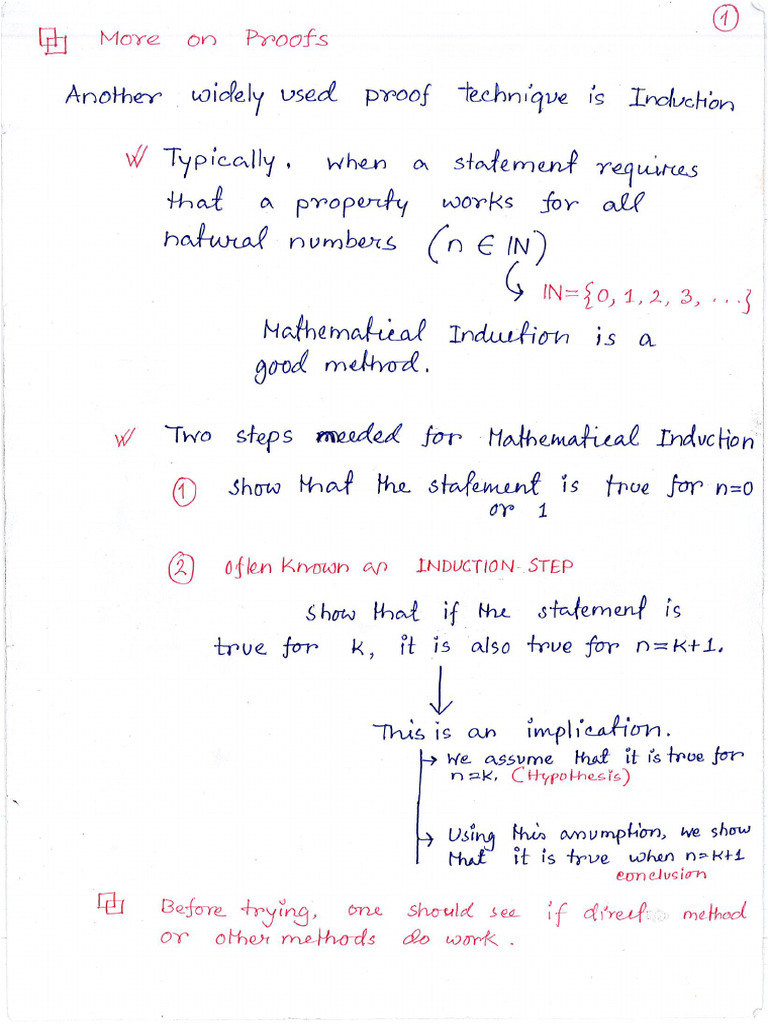 1
More on Proofs
Another widely used proof technique is Induction
Typically. when a statement requires
that a property works for all
natural numbers (n ∈ IN)
IN={0, 1, 2, 3, ...}
Mathematical Induction is a
good method.
Two steps needed for Mathematical Induction
① show that the statement is true for n=0
or 1
② often known as INDUCTION-STEP
show that if the statement is
true for k, it is also true for n=k+1.
This is an implication.
→ we assume that it is true for
n=k. (Hypothesis)
→ Using this assumption, we show
that it is true when n=k+1
conclusion
Before trying, one should see if direct method
or other methods do work.